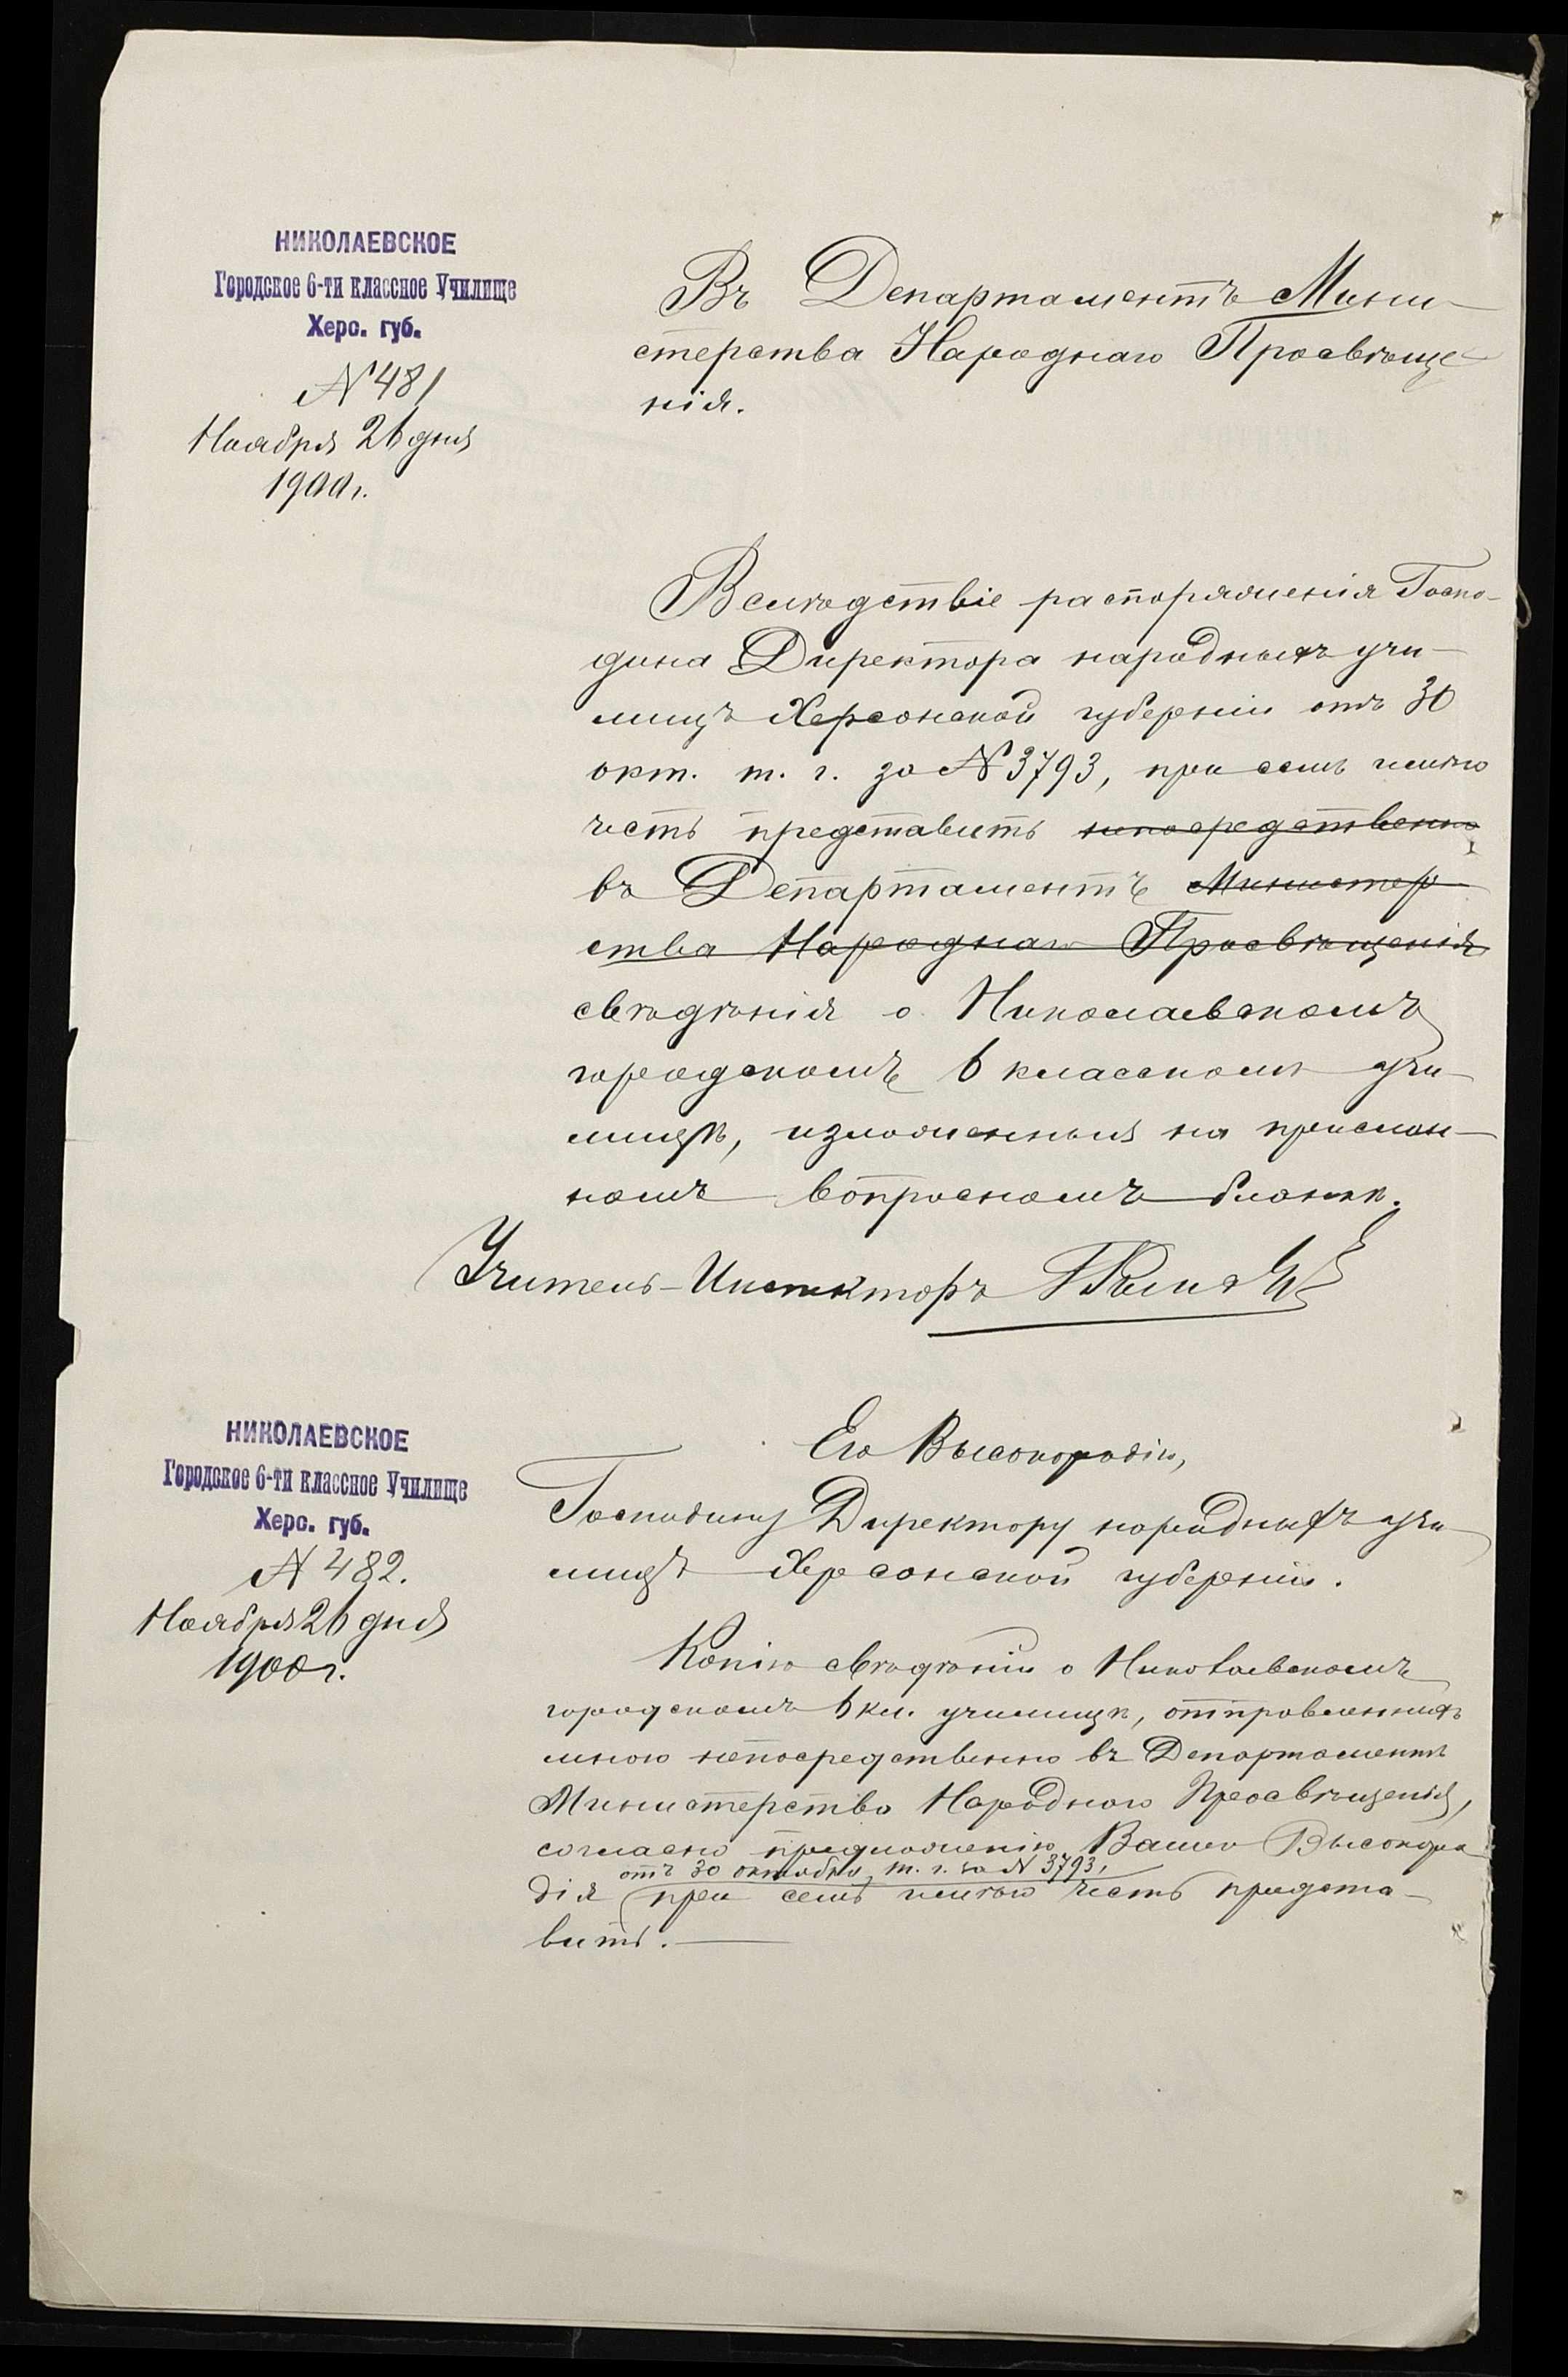 НИКОЛАЕВСКОЕ
Городское 6-ти классное Училище
Херс. губ.
№ 481
Ноября 26 дня
1900 г.
Въ Департаментъ Мини-
стерства Народнаго Просвѣще-
нія.
Вслѣдствіе распоряженія Госпо-
дина Директора народныхъ учи-
лищъ Херсонской губерніи отъ 30
окт. т. г. за № 3793, при семъ имѣю
честь представить непосредственно
въ Департаментъ Министер-
ства Народнаго Просвѣщенія
свѣдѣнія о Николаевскомъ
городскомъ 6 классномъ учи-
лищѣ, изложенныя на прислан-
номъ вопросномъ бланкѣ.
Учитель-Инспекторъ
НИКОЛАЕВСКОЕ
Городское 6-ти классное Училище
Херс. губ.
№ 482.
Ноября 26 дня
1900 г.
Его Высокородію,
Господину Директору народныхъ учи-
лищъ Херсонской губерніи.
Копію свѣдѣній о Николаевскомъ
городскомъ 6 кл. училищѣ, отправленныхъ
мною непосредственно въ Департаментъ
Министерства Народнаго Просвѣщенія,
согласно предложенію Вашего Высокоро-
отъ 30 октября т. г. за № 3793,
дія при семъ имѣю честь предста-
вить.